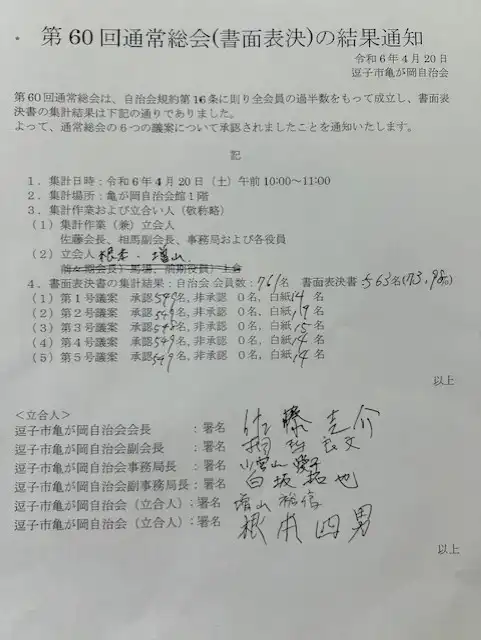 第60回通常総会(書面表決)の結果通知
令和6年4月20日
逗子市亀が岡自治会
第60回通常総会は、自治会規約第16条に則り全会員の過半数をもって成立し、書面表
決書の集計結果は下記の通りでありました。
よって、通常総会の6つの議案について承認されましたことを通知いたします。
記
1．集計日時：令和6年4月20日（土）午前10:00～11:00
2．集計場所：亀が岡自治会館1階
3．集計作業および立合い人（敬称略）
(1) 集計作業（兼）立会人
佐藤会長、相馬副会長、事務局および各役員
(2) 立会人 根本・増山
4．書面表決書の集計結果：自治会 会員数：761名 書面表決書：563名(73.98%)
(1) 第1号議案 承認549名, 非承認 0名, 白紙14名
(2) 第2号議案 承認 名, 非承認 0名, 白紙 名
(3) 第3号議案 承認548名, 非承認 0名, 白紙15名
(4) 第4号議案 承認549名, 非承認 0名, 白紙14名
(5) 第5号議案 承認549名, 非承認 0名, 白紙14名
以上
＜立合人＞
逗子市亀が岡自治会会長 ：署名 佐藤圭介
逗子市亀が岡自治会副会長 ：署名 相馬良文
逗子市亀が岡自治会事務局長 ：署名
逗子市亀が岡自治会副事務局長：署名 白坂拓也
逗子市亀が岡自治会（立合人）：署名 増山裕信
逗子市亀が岡自治会（立合人）：署名 根本四男
以上